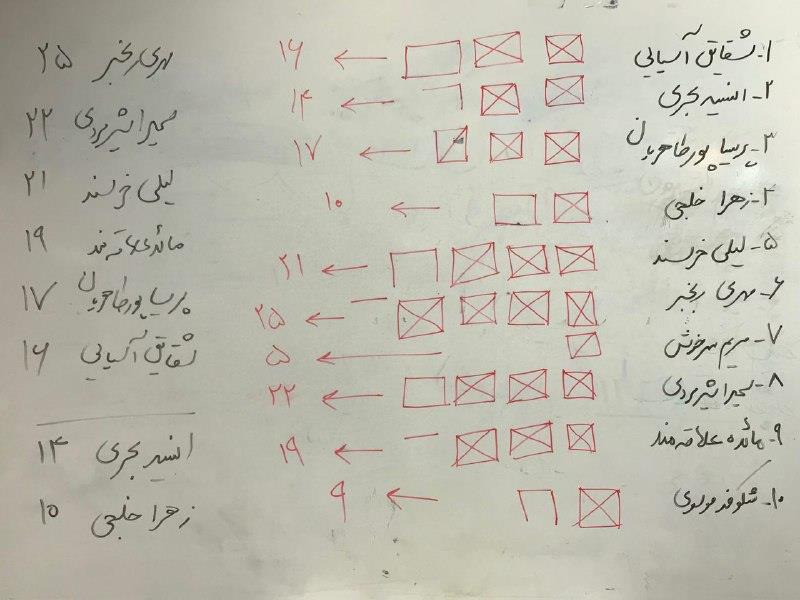 ۱- شقایق آسیابی ← ۱۶
۲- انسیه بحری ← ۱۴
۳- پریسا پورطاهریان ← ۱۷
۴- زهرا خلجی ← ۱۰
۵- لیلی خرسند ← ۲۱
۶- مهری رنجبر ← ۲۵
۷- مریم سرخوش ← ۵
۸- سمیرا شیرمردی ← ۲۲
۹- مائده علاقه‌مند ← ۱۹
۱۰- شکوفه موسوی ← ۹
مهری رنجبر ۲۵
سمیرا شیرمردی ۲۲
لیلی خرسند ۲۱
مائده علاقه‌مند ۱۹
پریسا پورطاهریان ۱۷
شقایق آسیابی ۱۶
انسیه بحری ۱۴
زهرا خلجی ۱۰